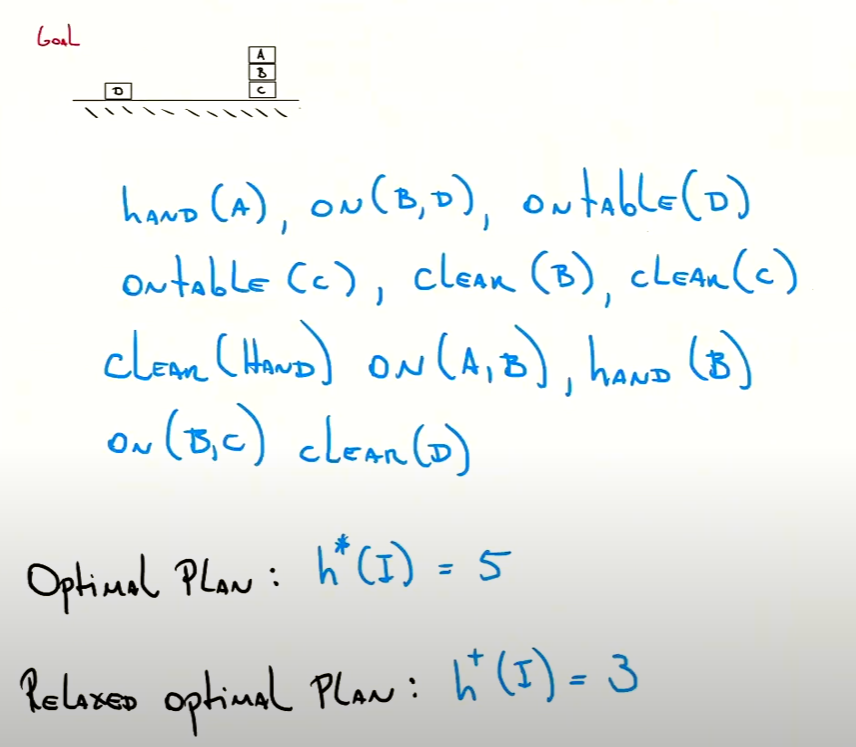 Goal
A
B
D C
hand(A), on(B,D), ontable(D)
ontable(C), clear(B), clear(C)
clear(Hand) on(A,B), hand(B)
on(B,C) clear(D)
Optimal Plan: h*(I) = 5
Relaxed optimal Plan: h⁺(I) = 3